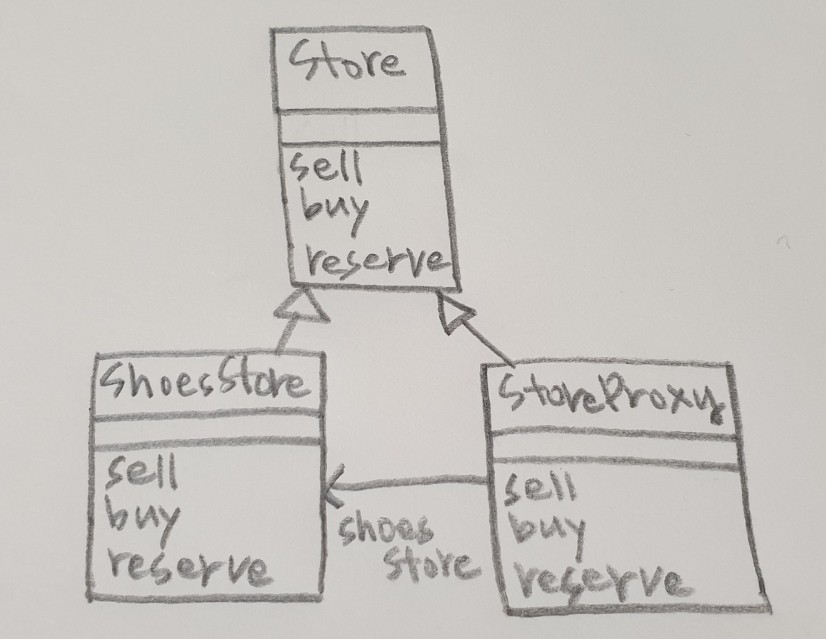 Store
sell
buy
reserve
ShoesStore
sell
buy
reserve
shoes
store
StoreProxy
sell
buy
reserve